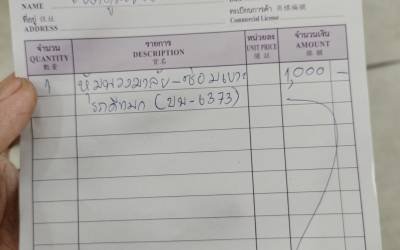 NAME
ทะเบียนการค้า
Commercial License
ที่อยู่
ADDRESS
จำนวน รายการ หน่วยละ จำนวนเงิน
QUANTITY DESCRIPTION UNIT PRICE AMOUNT
1 หุ้มพวงมาลัย-ซ่อมเบาะ 1,000 -
(ขม-6373)